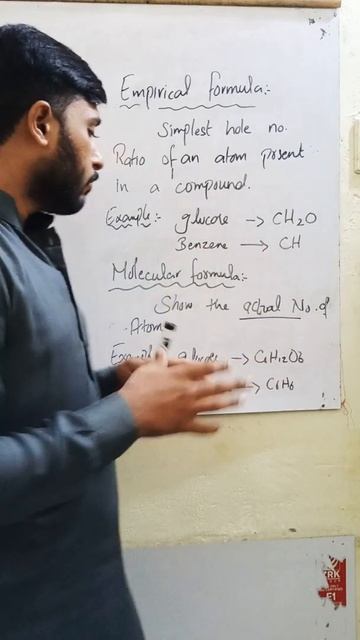 Empirical formula:-
Simplest hole no.
Ratio of an atom present
in a compound.
Example:- glucose → CH2O
Benzene → CH
Molecular formula:-
Show the actual No. of
Atom
glucose → C6H12O6
→ C6H6
RK
F1